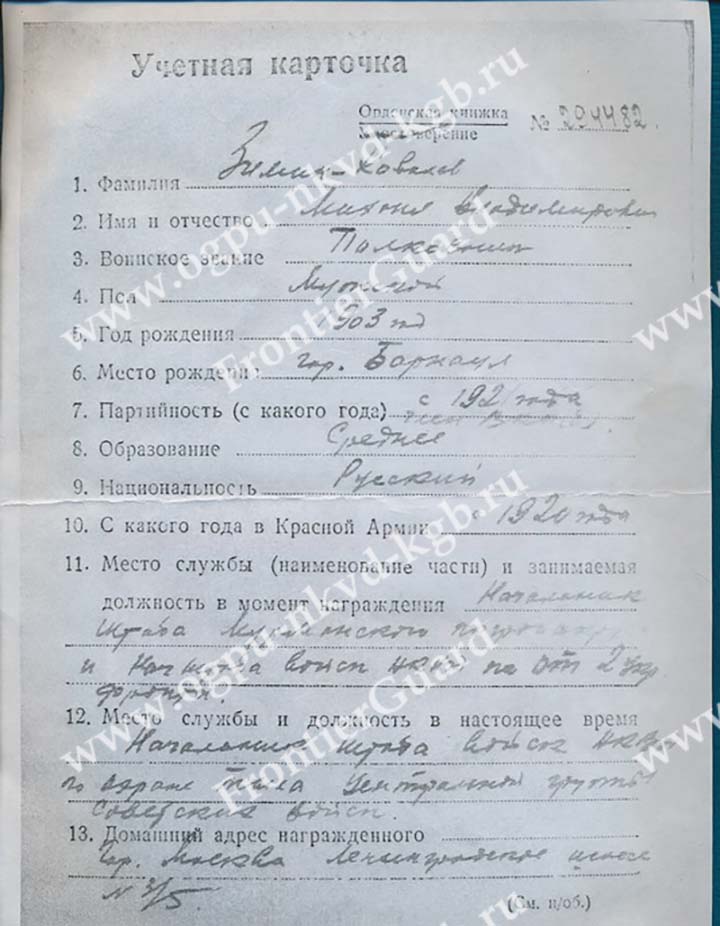 Учетная карточка
Орденская книжка
Удостоверение
№ 294482.
1. Фамилия Зимин-Ковалев
2. Имя и отчество Михаил Владимирович
3. Воинское звание Полковник
4. Пол Мужской
5. Год рождения 1903 год
6. Место рождения гор. Барнаул
7. Партийность (с какого года) с 192 года
8. Образование Среднее
9. Национальность Русский
10. С какого года в Красной Армии с 1920 года
11. Место службы (наименование части) и занимаемая
должность в момент награждения Начальник
штаба Мурманского
и Нач штаба войск НКВД по от 2 Укр.
фронта.
12. Место службы и должность в настоящее время
Начальник штаба войск НКВД
по охране тыла Центральной группы
Советских войск.
13. Домашний адрес награжденного
гор. Москва Ленинградское шоссе
N 3/5.
(См. н/об.)
www.ogpu-nkvd-kgb.ru
FrontierGuard
www.ogpu-nkvd-kgb.ru
FrontierGuard